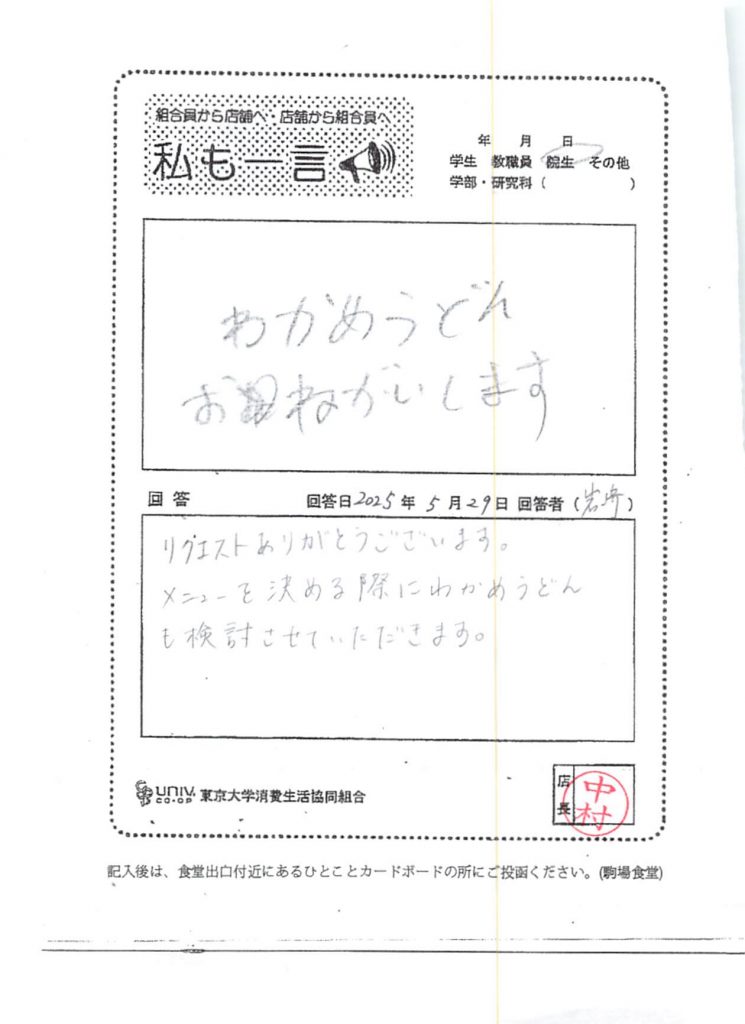 組合員から店舗へ・店舗から組合員へ
私も一言
年 月 日
学生 教職員 院生 その他
学部・研究科( )
わかめうどん
おねがいします
回答 回答日2025年5月29日 回答者(岩崎)
リクエストありがとうございます。
メニューを決める際にわかめうどん
も検討させていただきます。
UNIV. CO-OP 東京大学消費生活協同組合
店長 中村
記入後は、食堂出口付近にあるひとことカードボードの所にご投函ください。(駒場食堂)